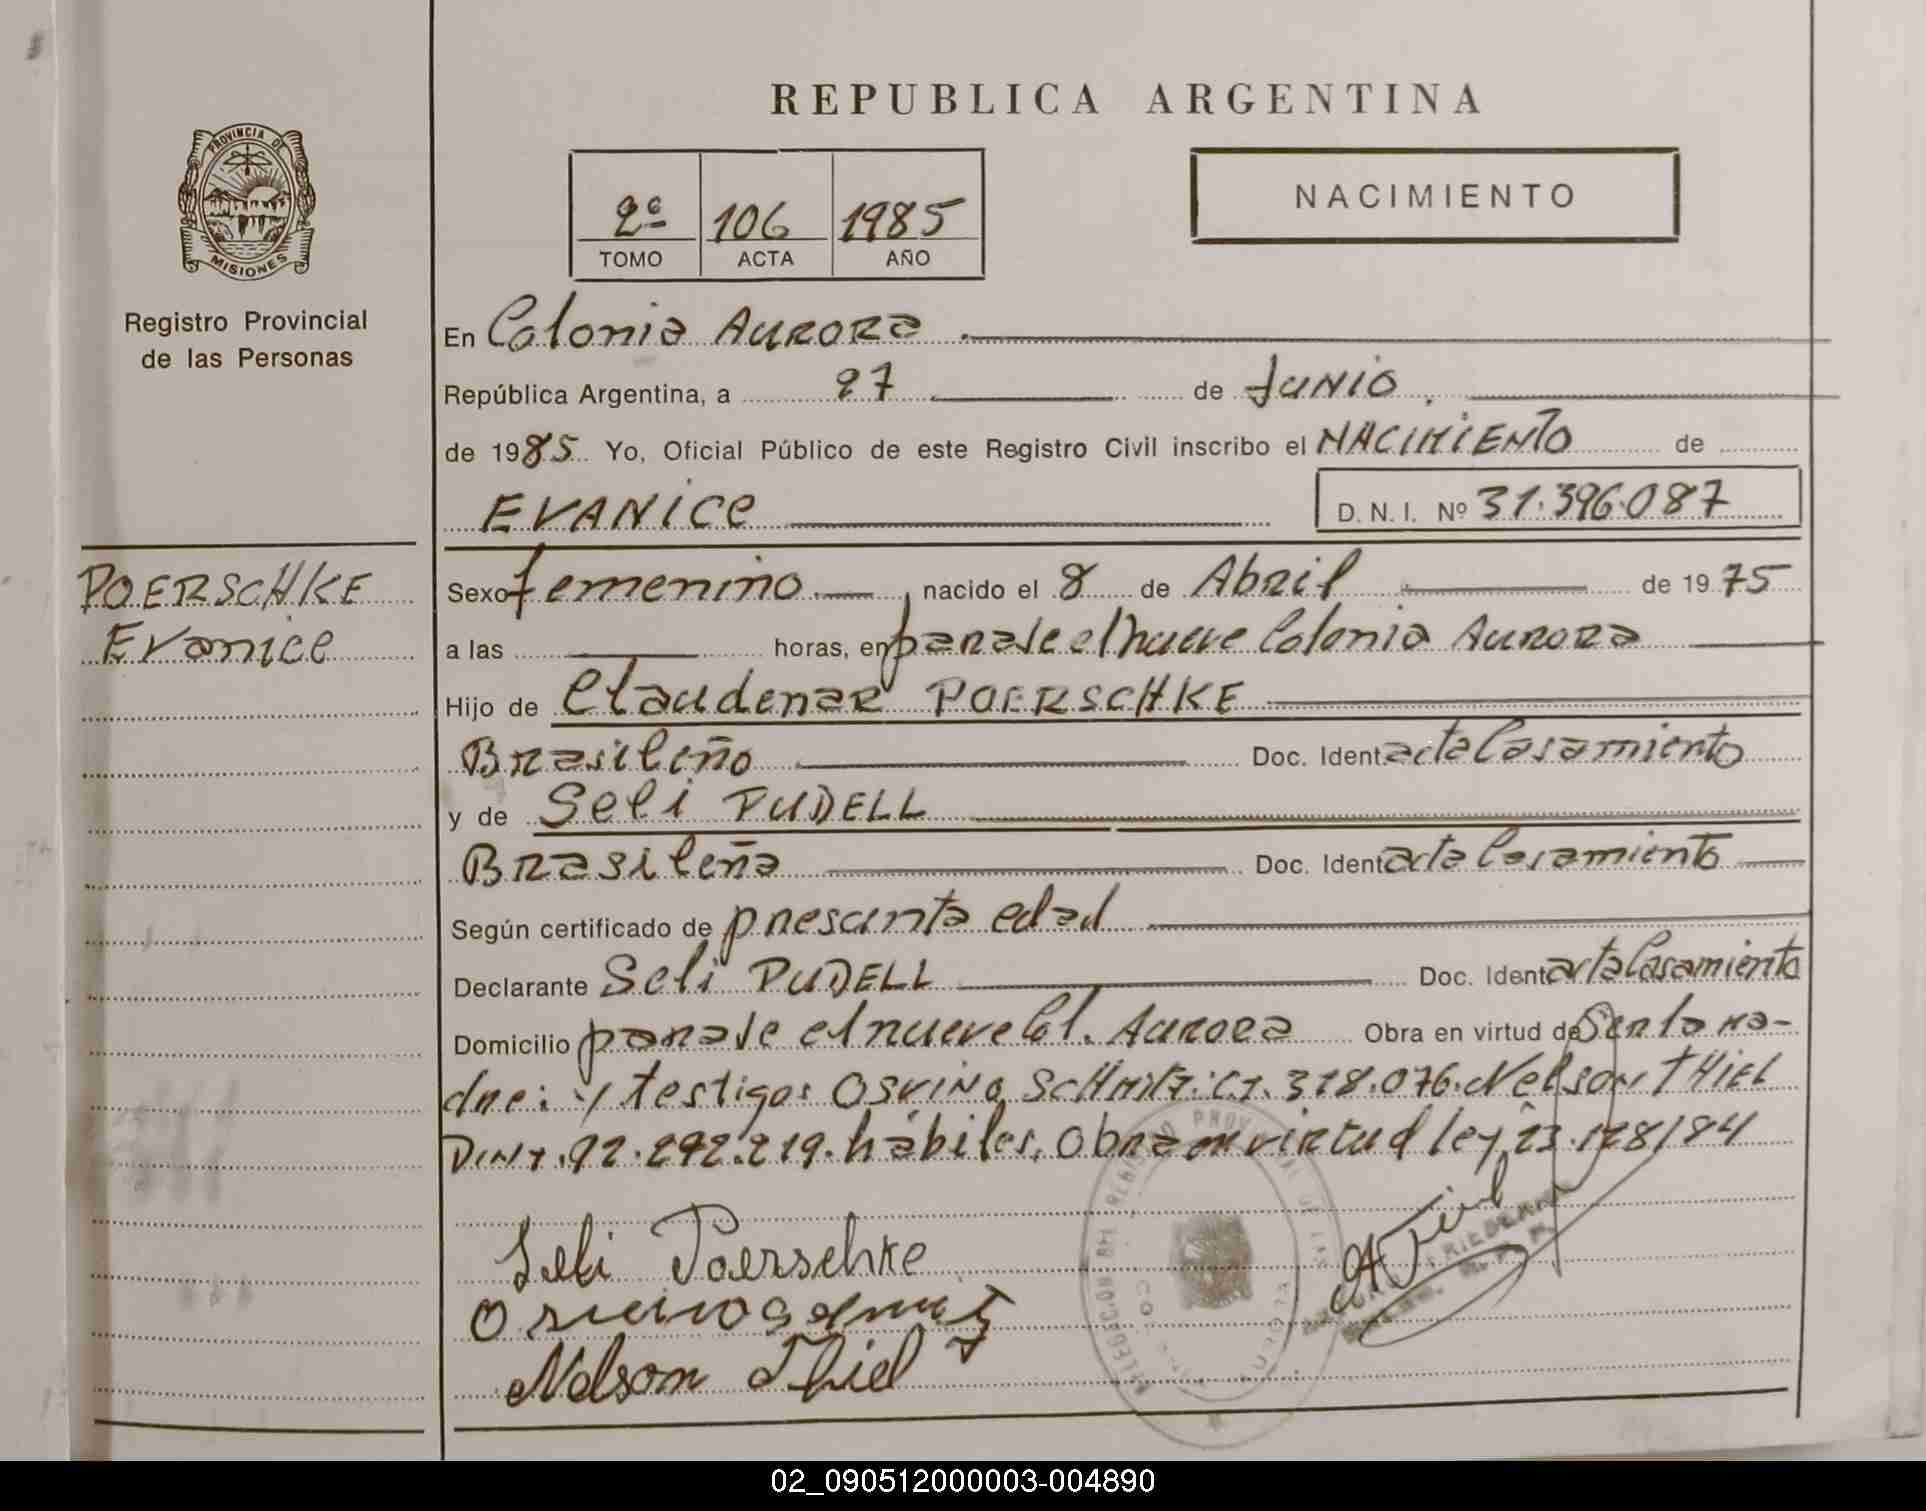 REPUBLICA ARGENTINA
PROVINCIA DE
MISIONES
Registro Provincial
de las Personas
2º 106 1985
TOMO ACTA AÑO
NACIMIENTO
En Colonia Aurora
República Argentina, a 27 de Junio
de 1985 Yo, Oficial Público de este Registro Civil inscribo el NACIMIENTO de
EVANICE D. N. I. Nº 31.396.087
POERSCHKE
Evanice
Sexo femenino nacido el 8 de Abril de 1975
a las horas, en paraje el nueve Colonia Aurora
Hijo de Claudenar POERSCHKE
Brasileño Doc. Ident acta Casamiento
y de Seli PUDELL
Brasileña Doc. Ident acta Casamiento
Según certificado de presunta edad
Declarante Seli PUDELL Doc. Ident acta Casamiento
Domicilio paraje el nueve Col. Aurora Obra en virtud de Ser la ma-
dre: y testigos OSVINO SCHMITZ: C.I. 318.076. Nelson THIEL
92.292.219. hábiles. Obra en virtud ley 23.128/84
Seli Poerschke
Nelson Thiel
02_090512000003-004890